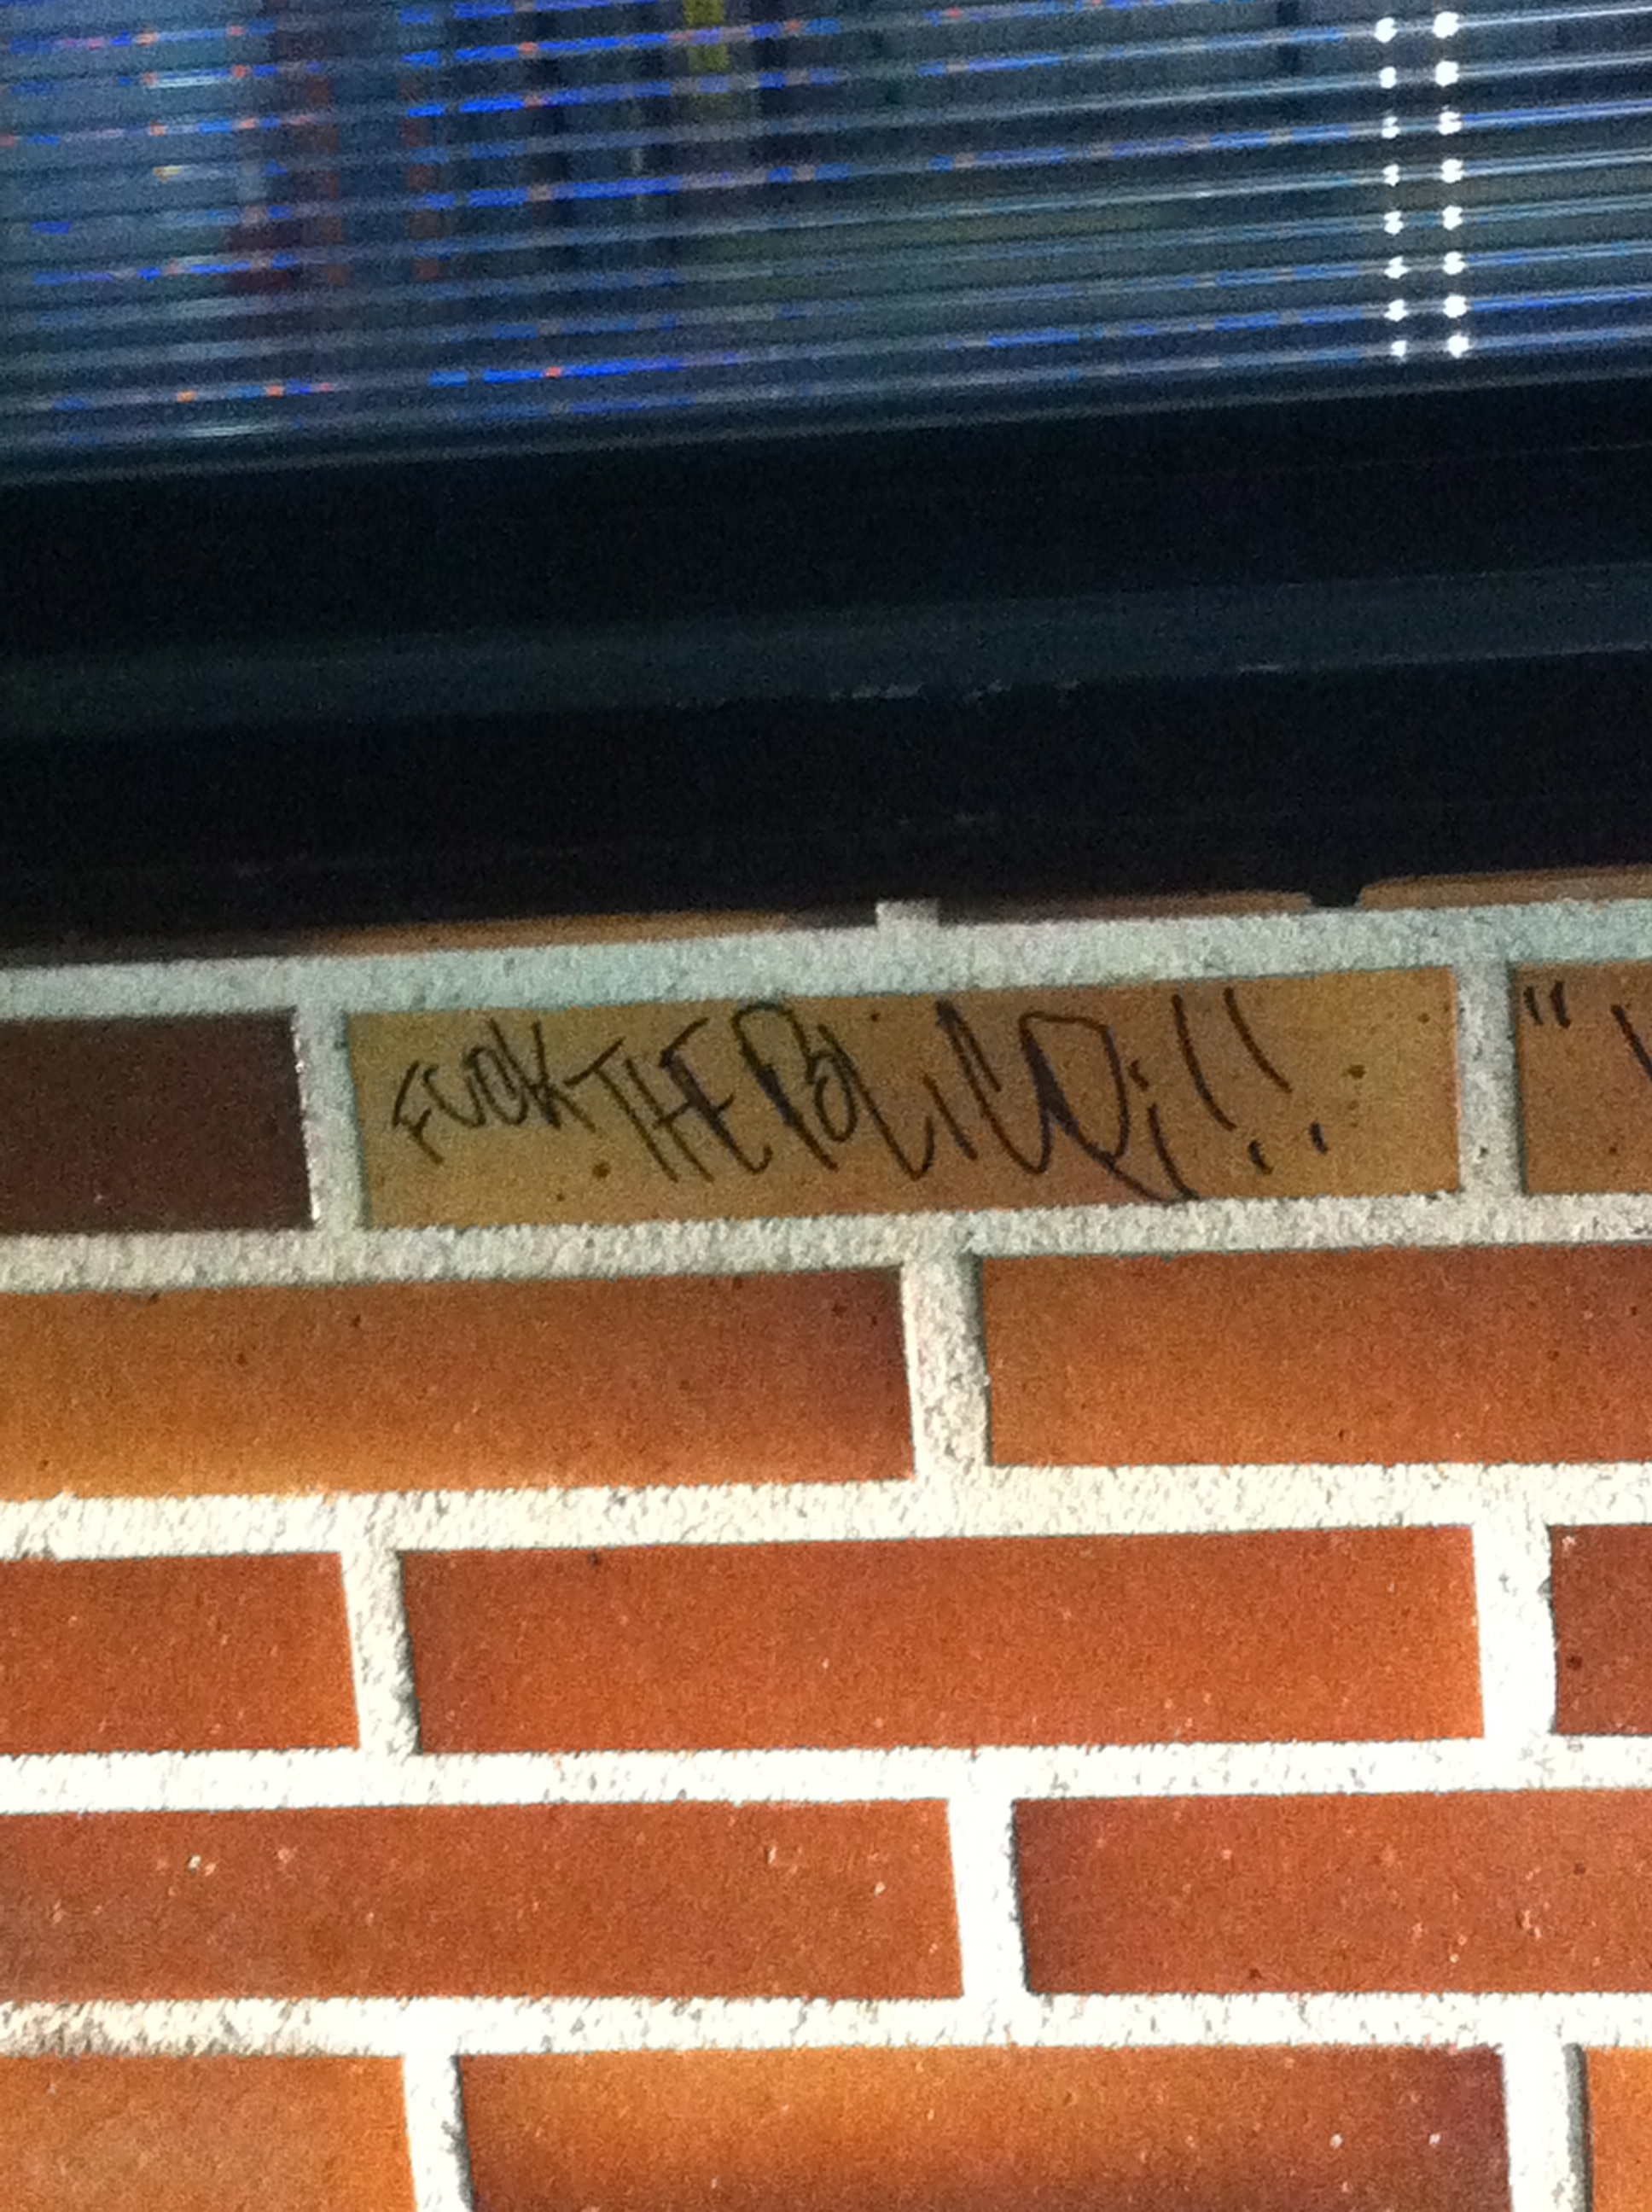 FUCK THE POLICE!!!
"